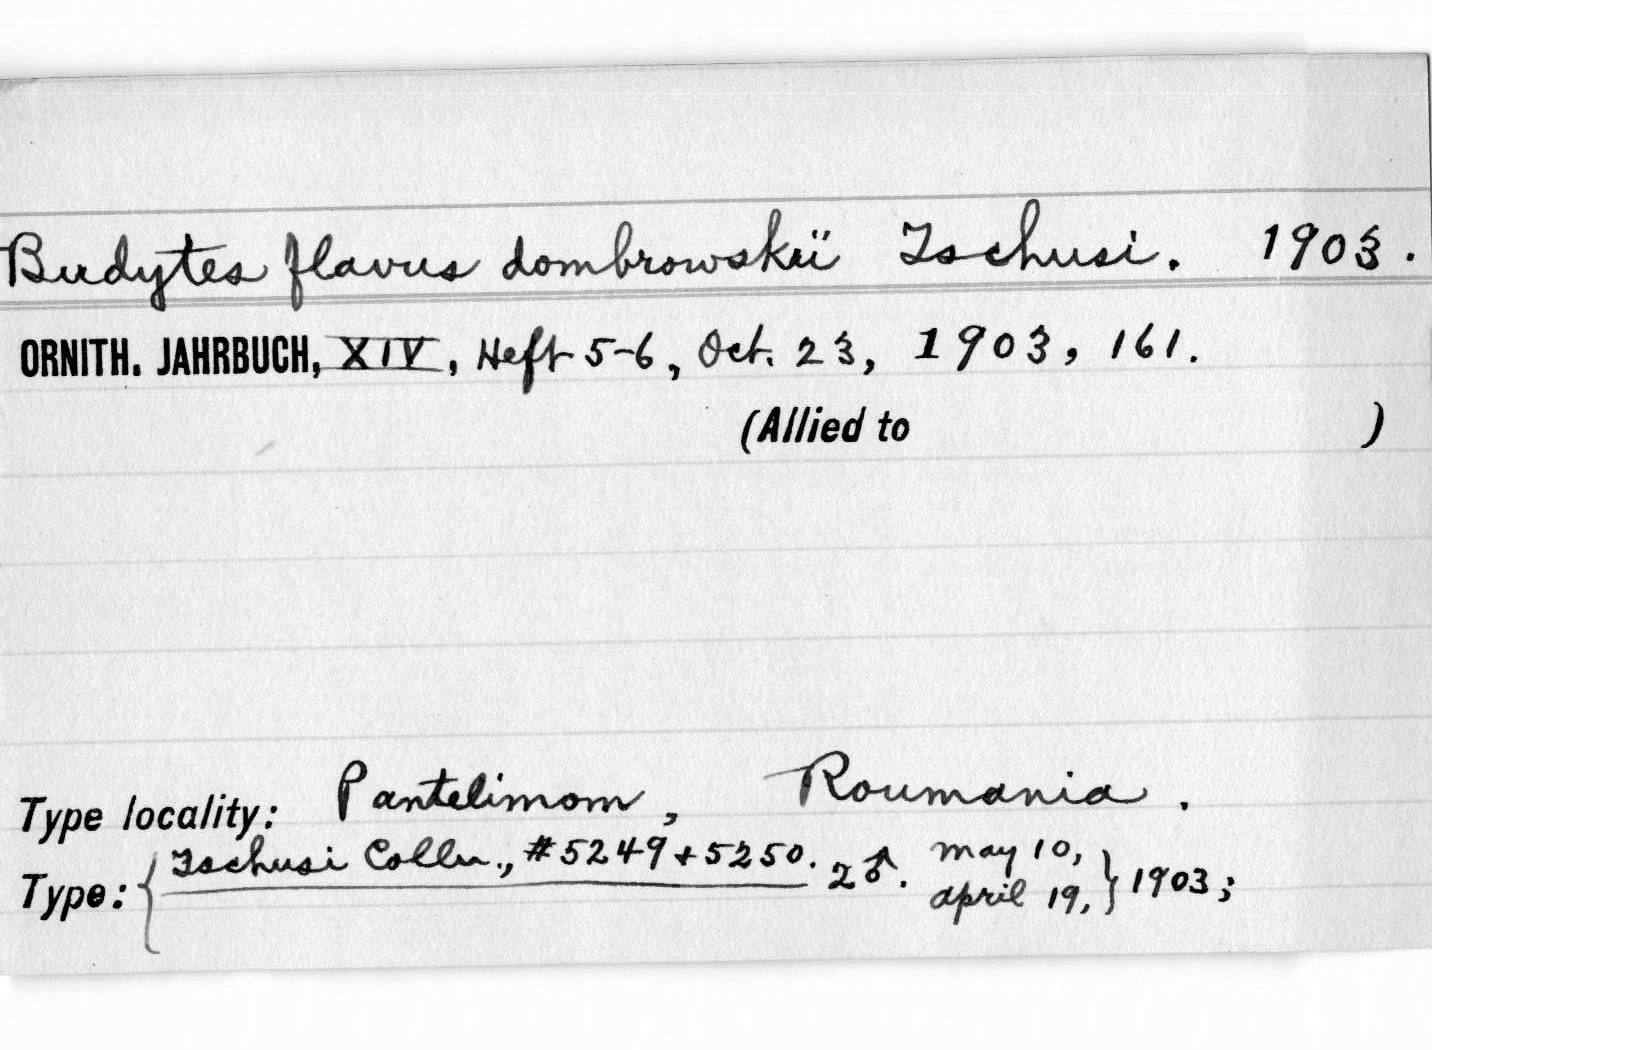 Budytes flavus dombrowskii Tschusi. 1903.
ORNITH. JAHRBUCH, XIV, Heft 5-6, Oct. 23, 1903, 161.
(Allied to )
Type locality: Pantelimom, Roumania.
Type: { Tschusi Colln., #5249 + 5250. 2♂. May 10, April 19, } 1903;